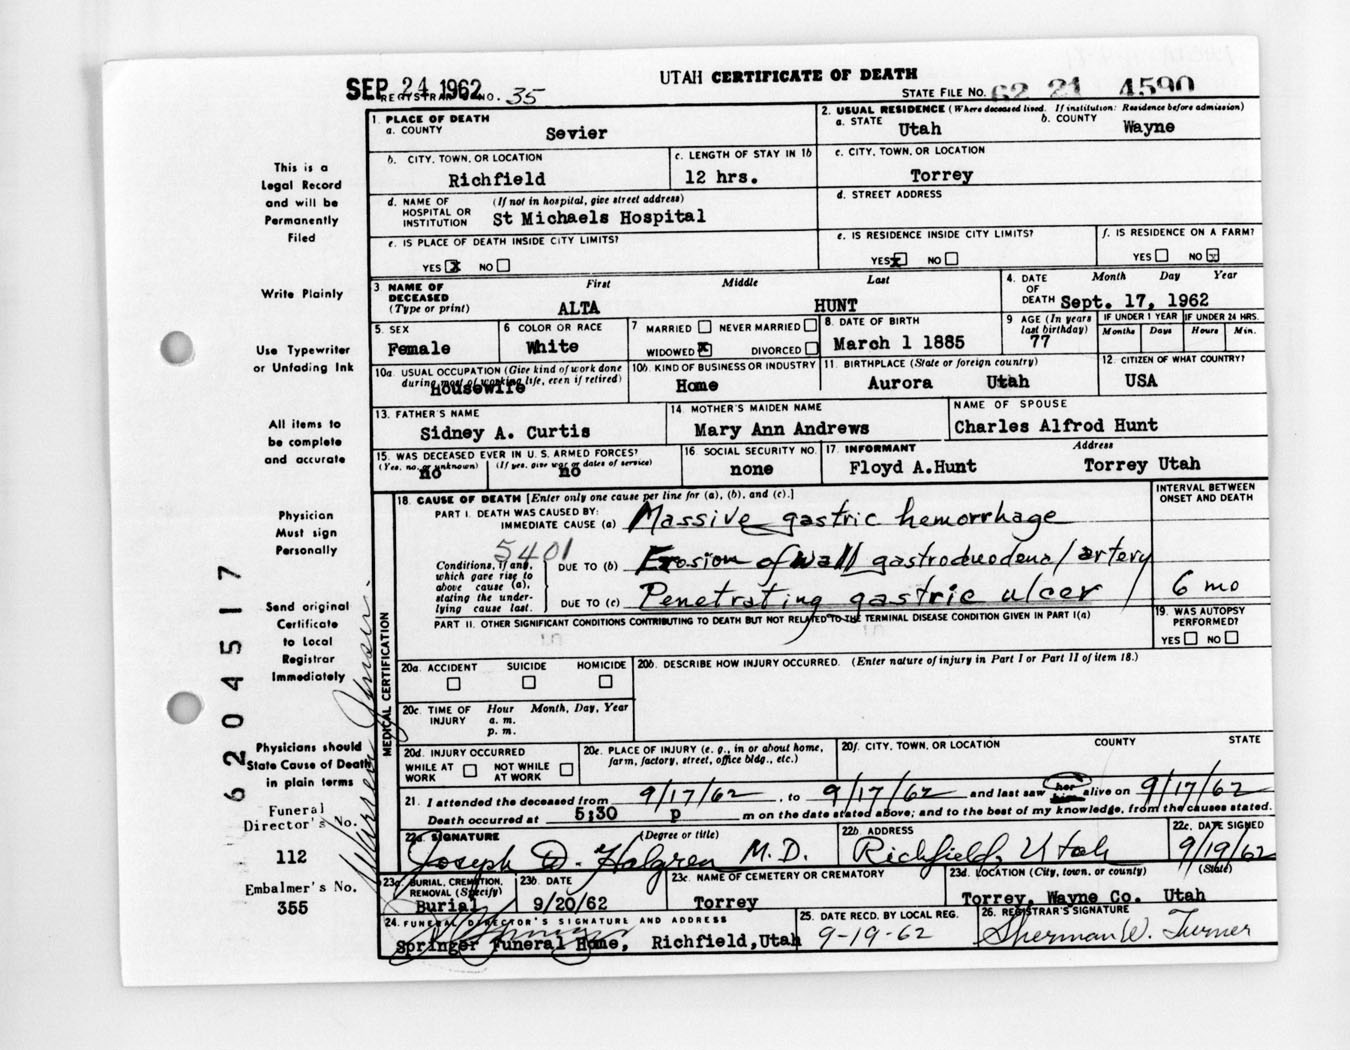 SEP 24 1962
REGISTRAR'S NO. 35
UTAH CERTIFICATE OF DEATH
STATE FILE NO. 62 21 4590
This is a
Legal Record
and will be
Permanently
Filed
Write Plainly
Use Typewriter
or Unfading Ink
All items to
be complete
and accurate
Physician
Must sign
Personally
Send original
Certificate
to Local
Registrar
Immediately
Physicians should
State Cause of Death
in plain terms
Funeral
Director's No.
112
Embalmer's No.
355
6204517
Warren Jensen
1. PLACE OF DEATH
a. COUNTY
Sevier
2. USUAL RESIDENCE (Where deceased lived. If institution: Residence before admission)
a. STATE Utah
b. COUNTY Wayne
b. CITY, TOWN, OR LOCATION
Richfield
c. LENGTH OF STAY IN 1b
12 hrs.
c. CITY, TOWN, OR LOCATION
Torrey
d. NAME OF HOSPITAL OR INSTITUTION (If not in hospital, give street address)
St Michaels Hospital
d. STREET ADDRESS
e. IS PLACE OF DEATH INSIDE CITY LIMITS?
YES X NO
e. IS RESIDENCE INSIDE CITY LIMITS?
YES X NO
f. IS RESIDENCE ON A FARM?
YES NO X
3 NAME OF DECEASED (Type or print)
First Middle Last
ALTA HUNT
4. DATE OF DEATH Month Day Year
Sept. 17, 1962
5. SEX
Female
6 COLOR OR RACE
White
7 MARRIED NEVER MARRIED
WIDOWED X DIVORCED
8. DATE OF BIRTH
March 1 1885
9 AGE (In years last birthday)
77
IF UNDER 1 YEAR IF UNDER 24 HRS.
Months Days Hours Min.
10a. USUAL OCCUPATION (Give kind of work done during most of working life, even if retired)
Housewife
10b. KIND OF BUSINESS OR INDUSTRY
Home
11. BIRTHPLACE (State or foreign country)
Aurora Utah
12. CITIZEN OF WHAT COUNTRY?
USA
13. FATHER'S NAME
Sidney A. Curtis
14. MOTHER'S MAIDEN NAME
Mary Ann Andrews
NAME OF SPOUSE
Charles Alfrod Hunt
15. WAS DECEASED EVER IN U. S. ARMED FORCES?
(Yes, no, or unknown) (If yes, give war or dates of service)
no no
16. SOCIAL SECURITY NO.
none
17. INFORMANT Address
Floyd A.Hunt Torrey Utah
MEDICAL CERTIFICATION
18. CAUSE OF DEATH [Enter only one cause per line for (a), (b), and (c).]
INTERVAL BETWEEN ONSET AND DEATH
PART I. DEATH WAS CAUSED BY:
IMMEDIATE CAUSE (a) Massive gastric hemorrhage
5401
Conditions, if any, which gave rise to above cause (a), stating the underlying cause last.
DUE TO (b) Erosion of wall gastroduodenal artery
DUE TO (c) Penetrating gastric ulcer 6 mo
PART II. OTHER SIGNIFICANT CONDITIONS CONTRIBUTING TO DEATH BUT NOT RELATED TO THE TERMINAL DISEASE CONDITION GIVEN IN PART I(a)
19. WAS AUTOPSY PERFORMED?
YES NO
20a. ACCIDENT SUICIDE HOMICIDE
20b. DESCRIBE HOW INJURY OCCURRED. (Enter nature of injury in Part I or Part II of item 18.)
20c. TIME OF INJURY Hour Month, Day, Year
a. m.
p. m.
20d. INJURY OCCURRED
WHILE AT WORK NOT WHILE AT WORK
20e. PLACE OF INJURY (e. g., in or about home, farm, factory, street, office bldg., etc.)
20f. CITY, TOWN, OR LOCATION COUNTY STATE
21. I attended the deceased from 9/17/62, to 9/17/62 and last saw her him alive on 9/17/62
Death occurred at 5;30 p m on the date stated above; and to the best of my knowledge, from the causes stated.
22a. SIGNATURE (Degree or title)
Joseph W. Halgren M.D.
22b. ADDRESS
Richfield, Utah
22c. DATE SIGNED
9/19/62
23a. BURIAL, CREMATION, REMOVAL (Specify)
Burial
23b. DATE
9/20/62
23c. NAME OF CEMETERY OR CREMATORY
Torrey
23d. LOCATION (City, town, or county) (State)
Torrey, Wayne Co. Utah
24. FUNERAL DIRECTOR'S SIGNATURE AND ADDRESS
Springer Funeral Home, Richfield,Utah
25. DATE RECD. BY LOCAL REG.
9-19-62
26. REGISTRAR'S SIGNATURE
Sherman W. Turner